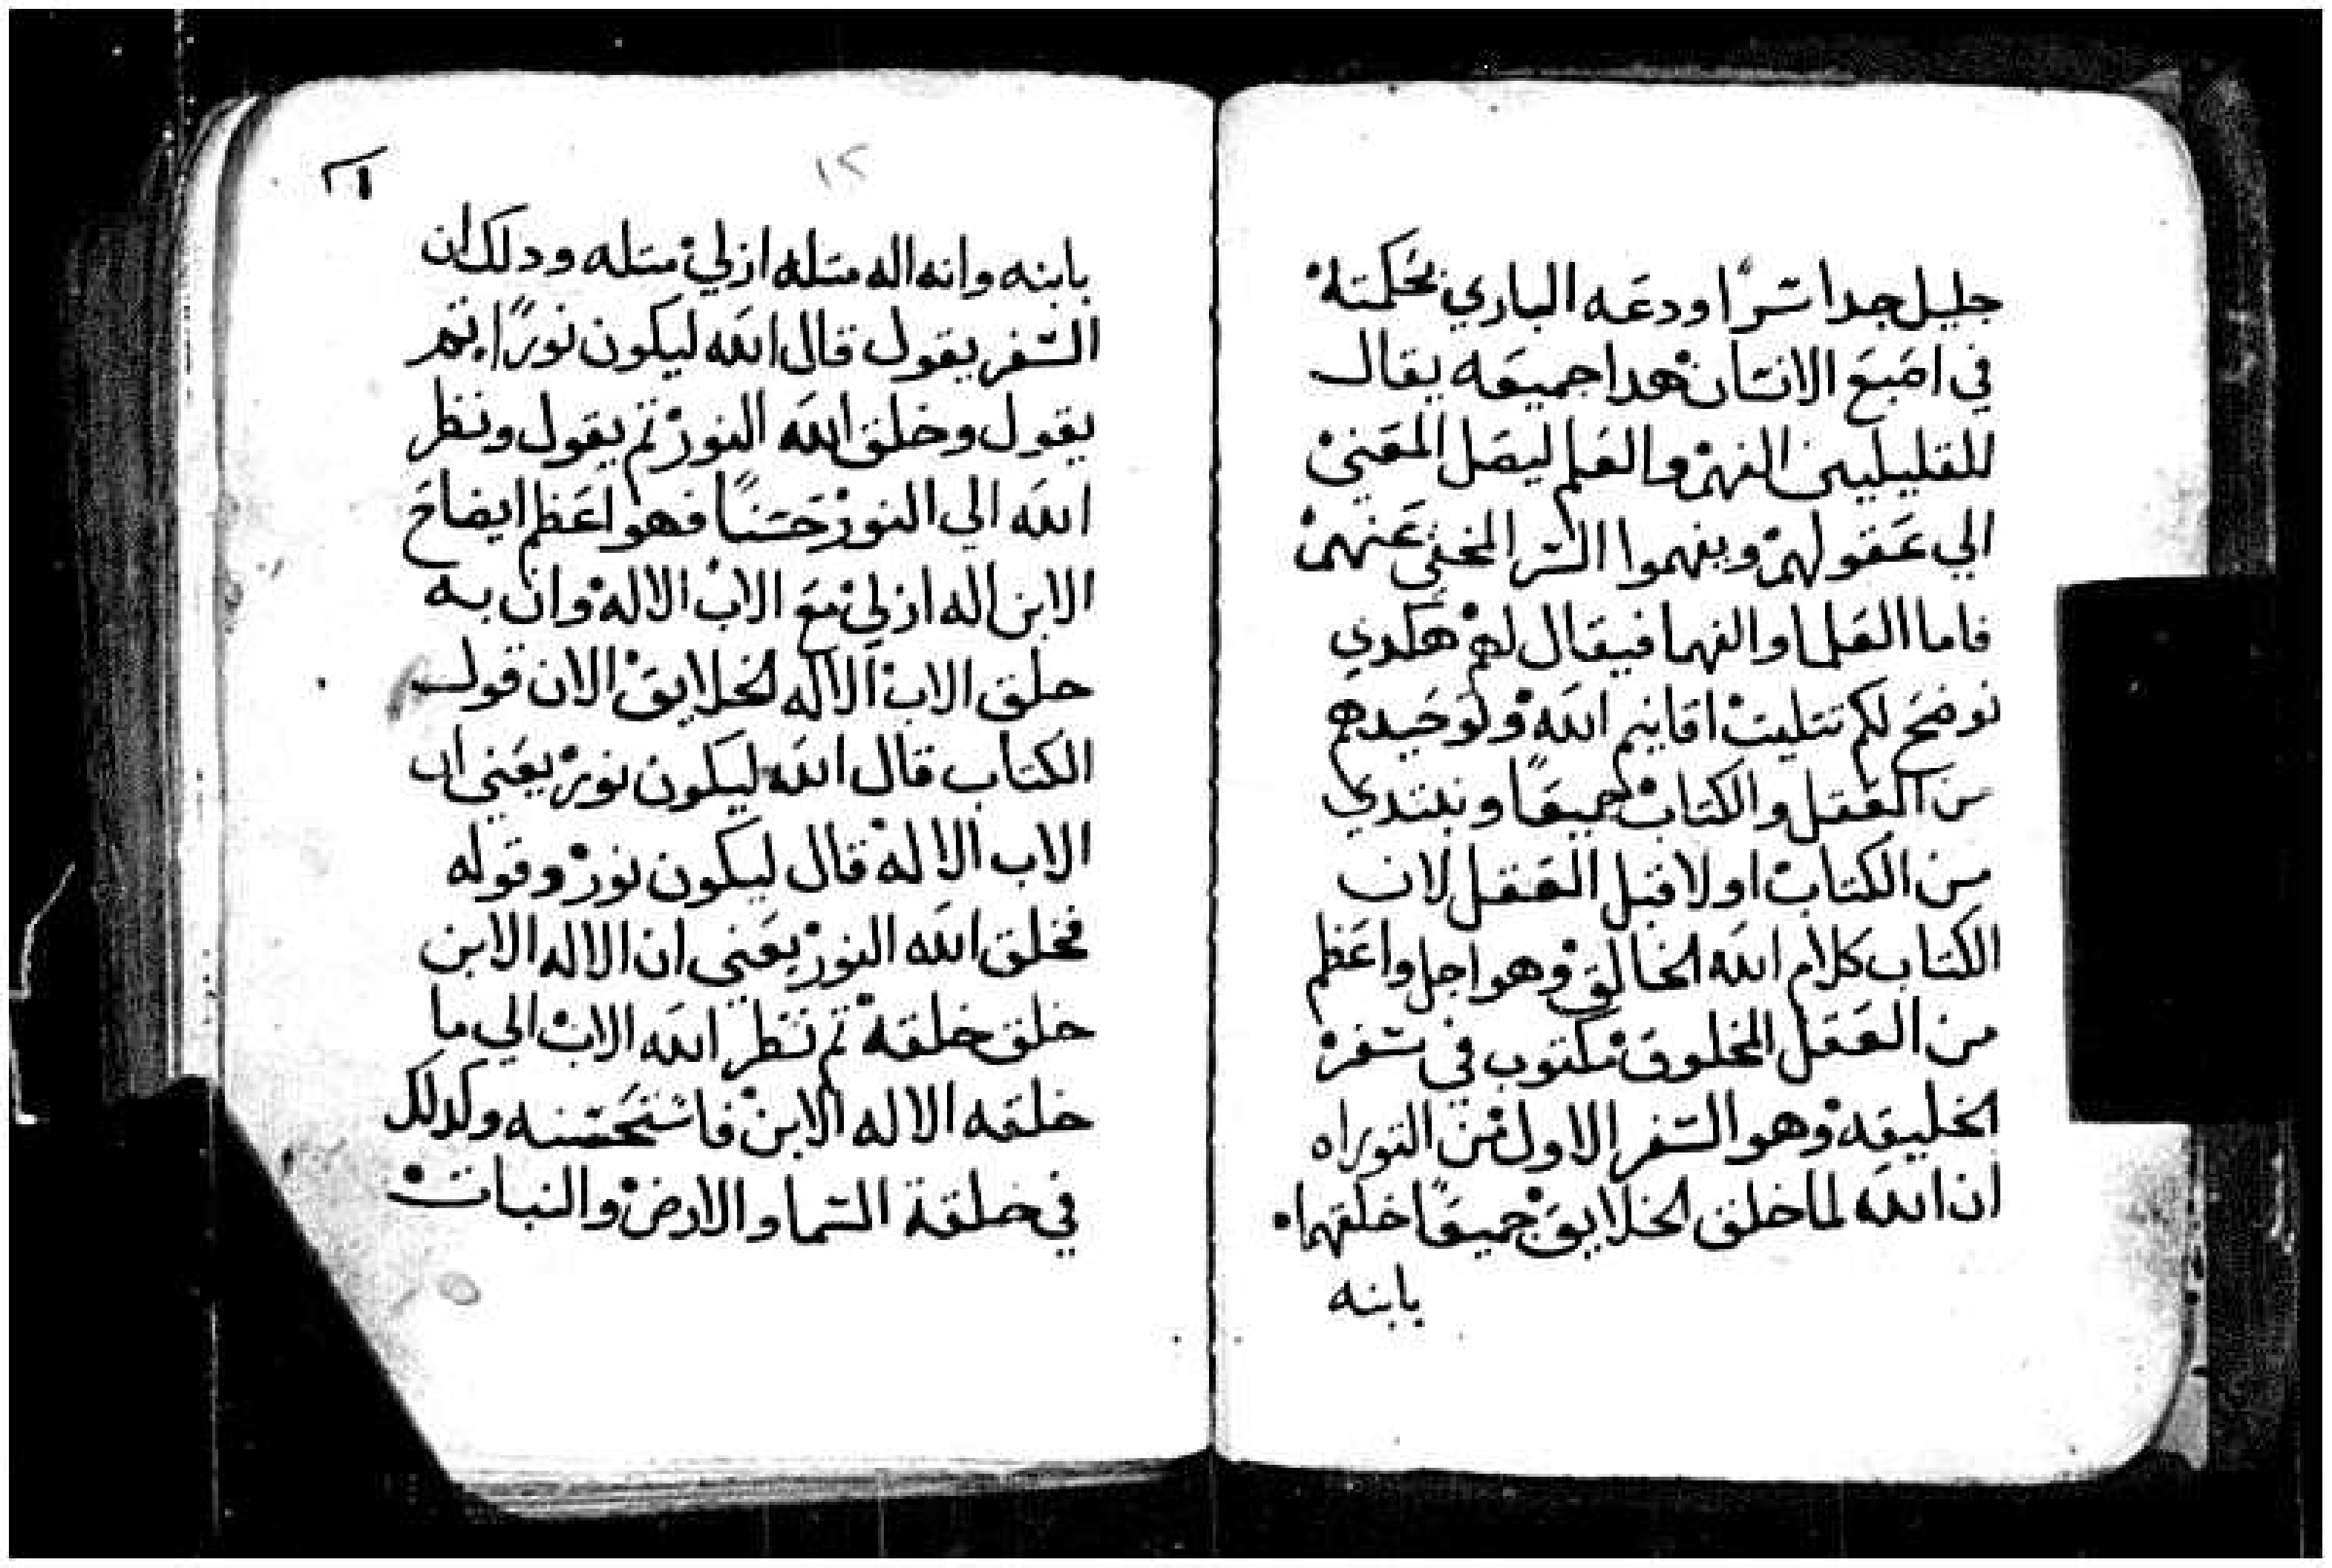 جليل جدا سرًا ودعه الباري بحكمته
في اصبع الانسان هدا جميعه يقال
للقليلين الفهم والعلم ليصل المعني
الي عقولهم ويفهموا السر المخفي عنهم
فاما العلما والفهما فيقال لهم هكدي
نوضح لكم تتليت اقانيم الله وتوحيدهم
من العقل والكتاب جميعًا ونبتدي
من الكتاب اولا قبل العقل لان
الكتاب كلام الله الخالق وهو اجل واعظم
من العقل المخلوق مكتوب في سفر
الخليقه وهو السفر الاول من التوراه
ان الله لما خلق الخلايق جميعًا خلقها
بابنه
١٢
بابنه وانه اله متله ازلي متله ودلك ان
السفر يقول قال الله ليكون نورًا تم
يقول وخلق الله النور تم يقول ونظر
الله الي النور حسنًا فهو اعظم ايضاح
الابن اله ازلي مع الاب الاله وان به
خلق الاب الاله الخلايق الان قول
الكتاب قال الله ليكون نور يعني ان
الاب الاله قال ليكون نور وقوله
فخلق الله النور يعني ان الاله الابن
خلق خلقة تم نظر الله الاب الي ما
خلقه الاله الابن فاستحسنه وكدلك
في خلقة السما والارض والنبات